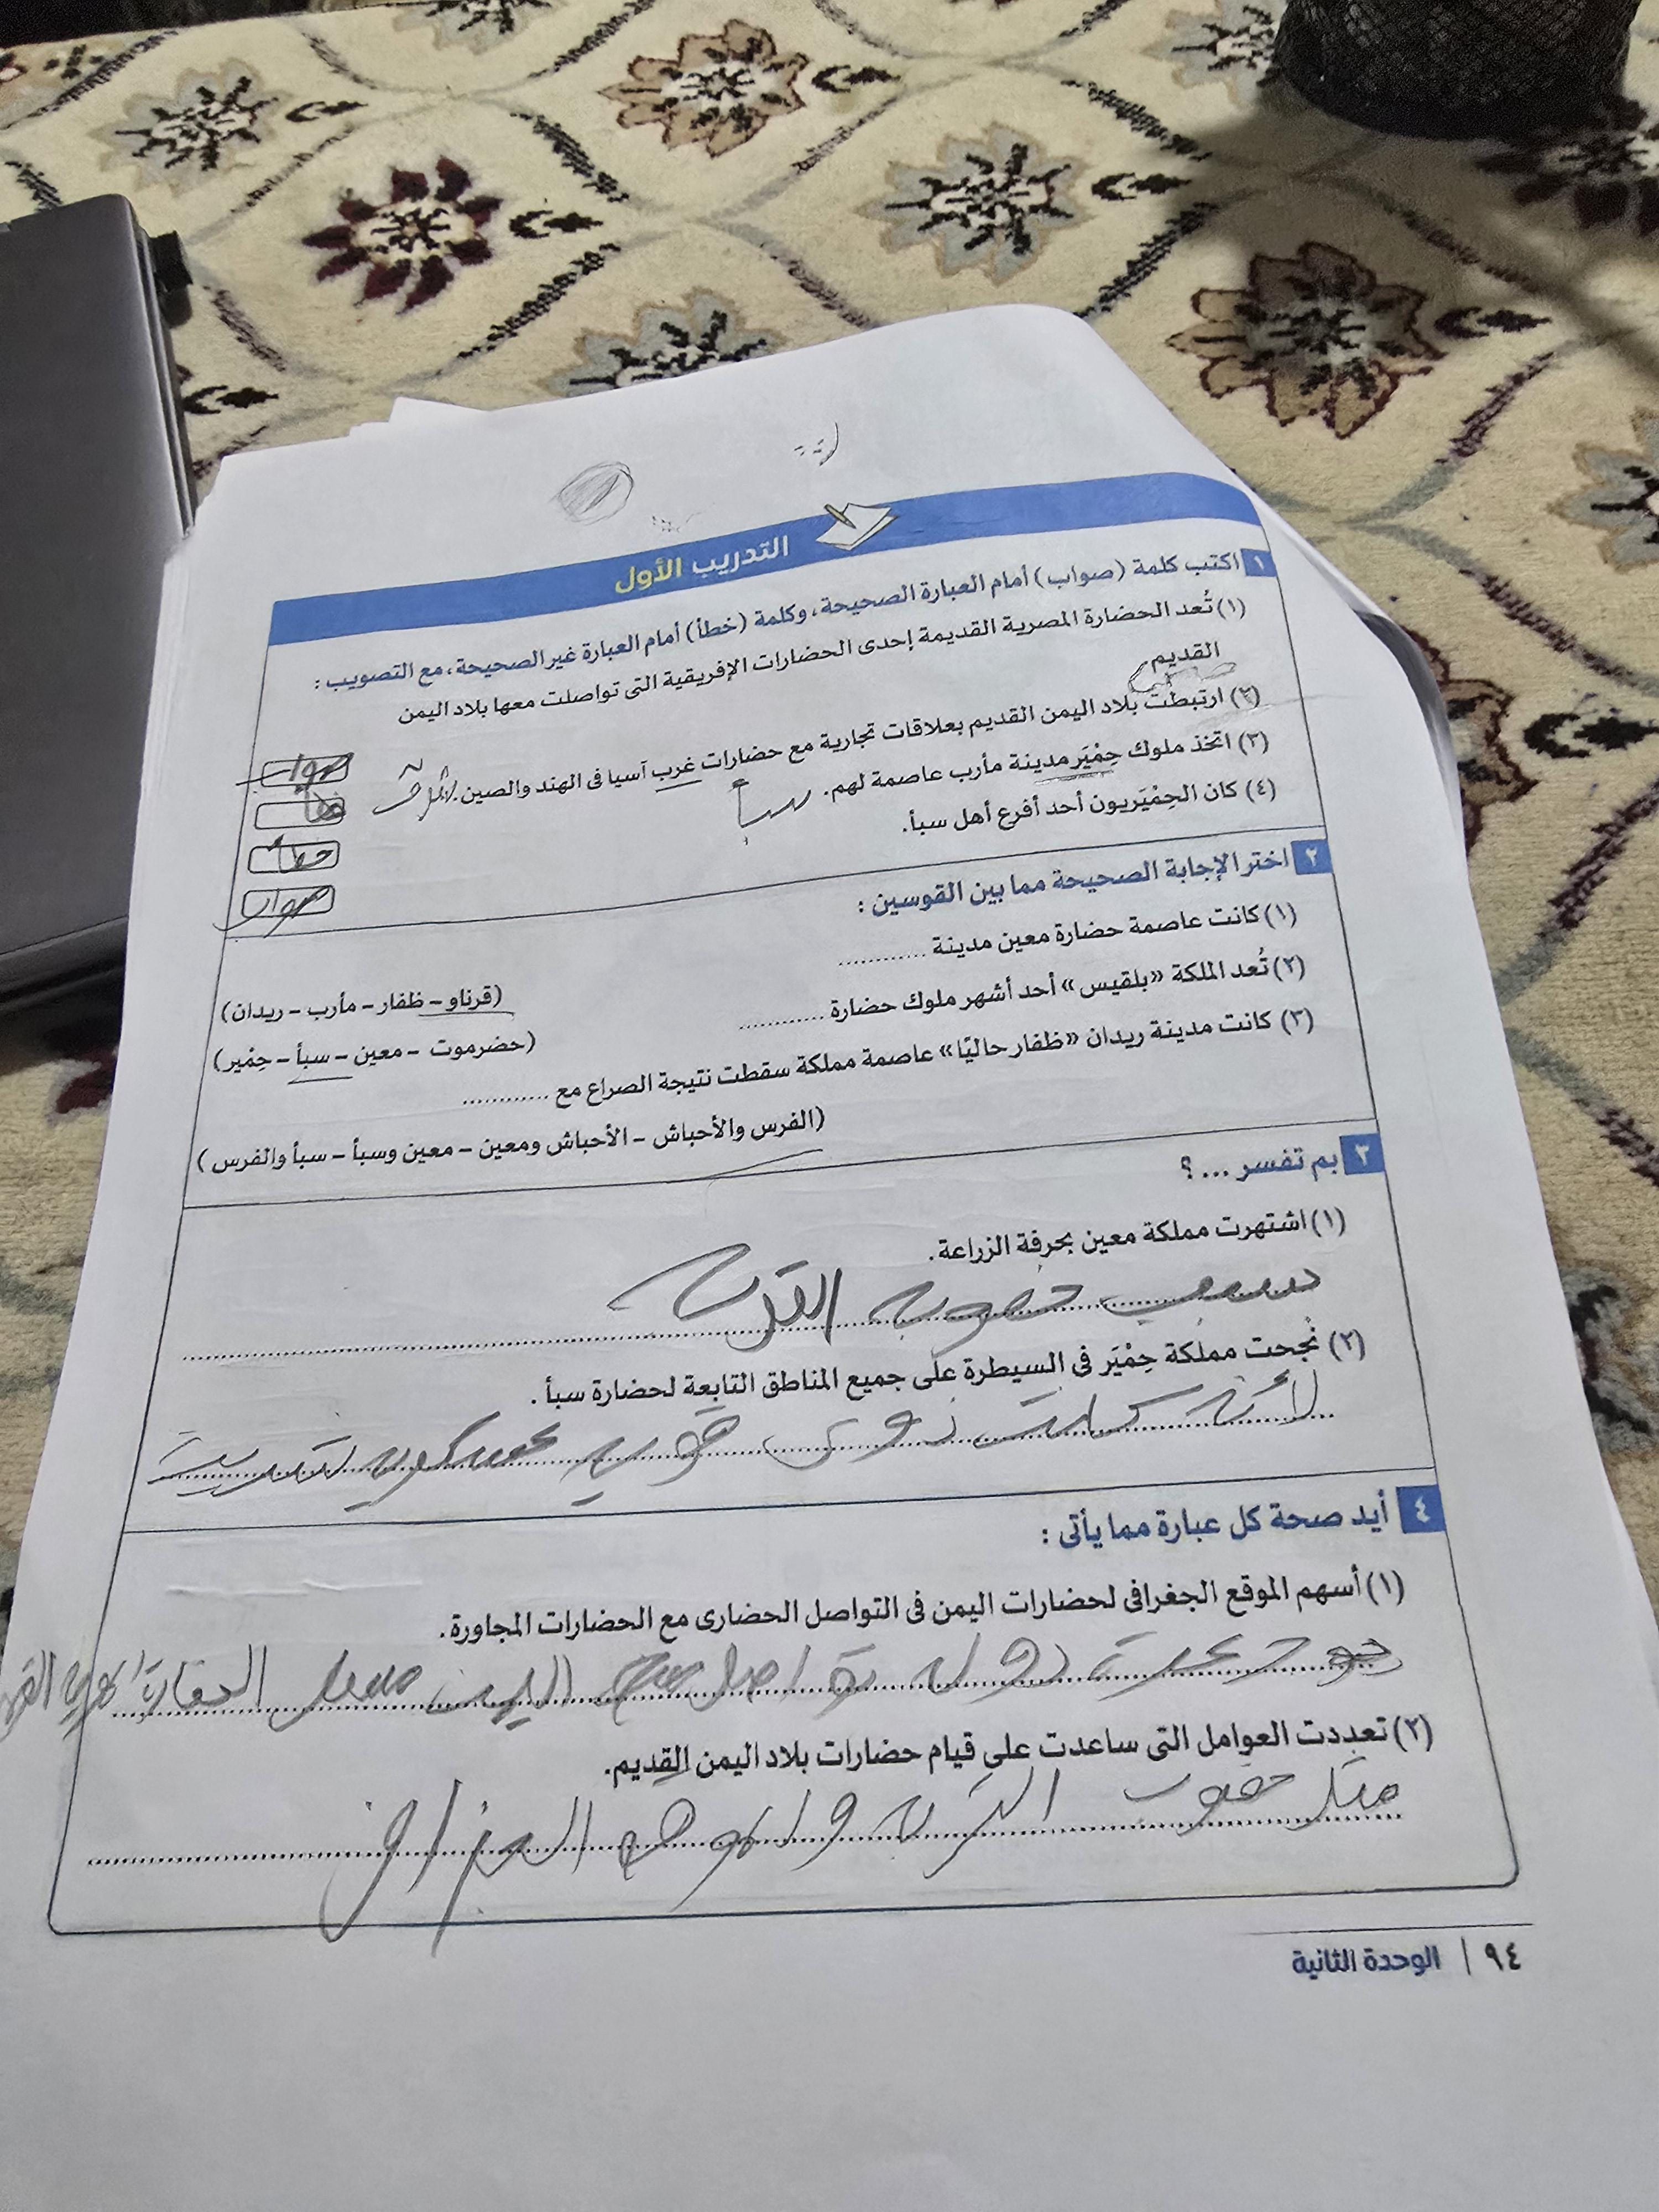 التدريب الأول
١ اكتب كلمة (صواب) أمام العبارة الصحيحة، وكلمة (خطأ) أمام العبارة غير الصحيحة، مع التصويب :
(١) تُعد الحضارة المصرية القديمة إحدى الحضارات الإفريقية التى تواصلت معها بلاد اليمن
القديم.
صواب
(٢) ارتبطت بلاد اليمن القديم بعلاقات تجارية مع حضارات غرب آسيا فى الهند والصين.
خطأ
(٣) اتخذ ملوك حِمْيَر مدينة مأرب عاصمة لهم. سبأ
خطأ
(٤) كان الحِمْيَريون أحد أفرع أهل سبأ.
صواب
٢ اختر الإجابة الصحيحة مما بين القوسين :
(١) كانت عاصمة حضارة معين مدينة ............
(قرناو – ظفار – مأرب – ريدان)
(٢) تُعد الملكة «بلقيس» أحد أشهر ملوك حضارة ............
(حضرموت – معين – سبأ – حِمْير)
(٣) كانت مدينة ريدان «ظفار حاليًا» عاصمة مملكة سقطت نتيجة الصراع مع ............
(الفرس والأحباش – الأحباش ومعين – معين وسبأ – سبأ والفرس)
٣ بم تفسر ... ؟
(١) اشتهرت مملكة معين بحرفة الزراعة.
بسبب خصوبه
(٢) نجحت مملكة حِمْيَر فى السيطرة على جميع المناطق التابعة لحضارة سبأ.
لأنه كانت ذوى قويه عسكريه
٤ أيد صحة كل عبارة مما يأتى :
(١) أسهم الموقع الجغرافى لحضارات اليمن فى التواصل الحضارى مع الحضارات المجاورة.
اليمن مثل الحضارة
(٢) تعددت العوامل التى ساعدت على قيام حضارات بلاد اليمن القديم.
مثل خصوب التربه والموقع الجغرافى
٩٤ | الوحدة الثانية